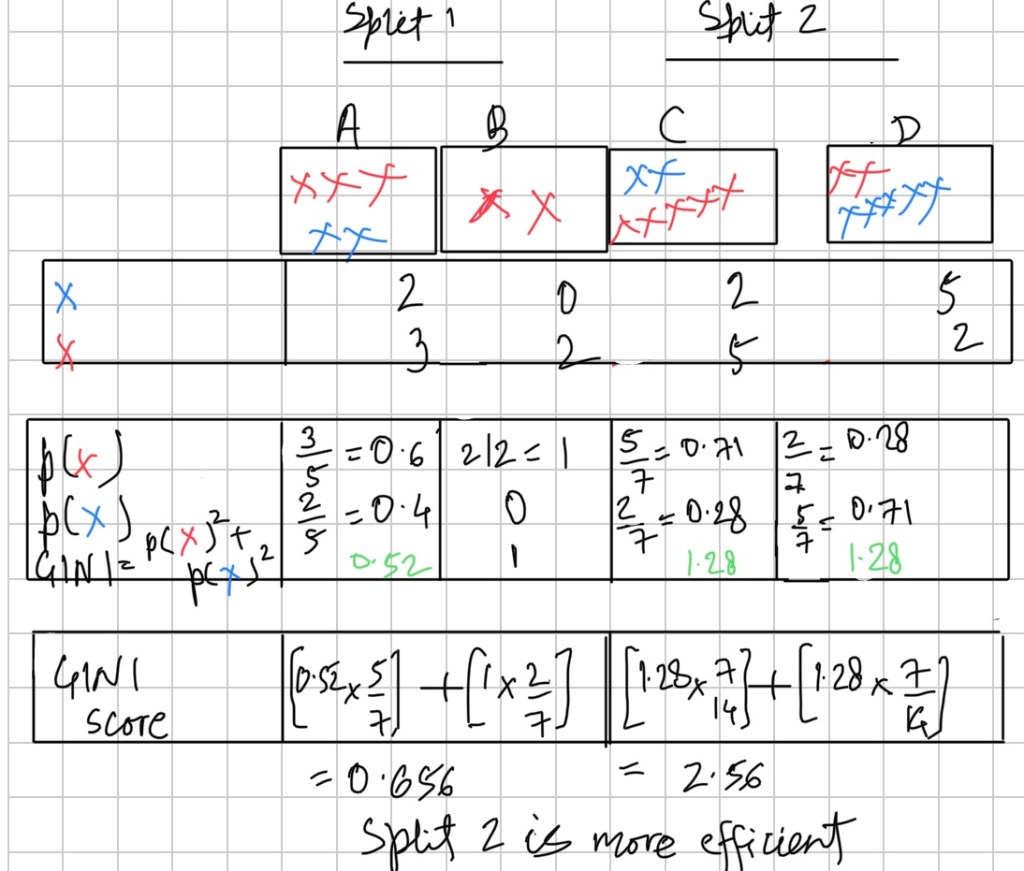 Split 1 Split 2
A B C D
x x x x x x x x x x x x x x x x x x x x x
x 2 0 2 5
x 3 2 5 2
p(x) 3/5 = 0.6 2/2 = 1 5/7 = 0.71 2/7 = 0.28
p(x) 2/5 = 0.4 0 2/7 = 0.28 5/7 = 0.71
GINI = p(x)² + p(x)² 0.52 1 1.28 1.28
GINI score [0.52 x 5/7] + [1 x 2/7] [1.28 x 7/14] + [1.28 x 7/14]
= 0.656 = 2.56
Split 2 is more efficient